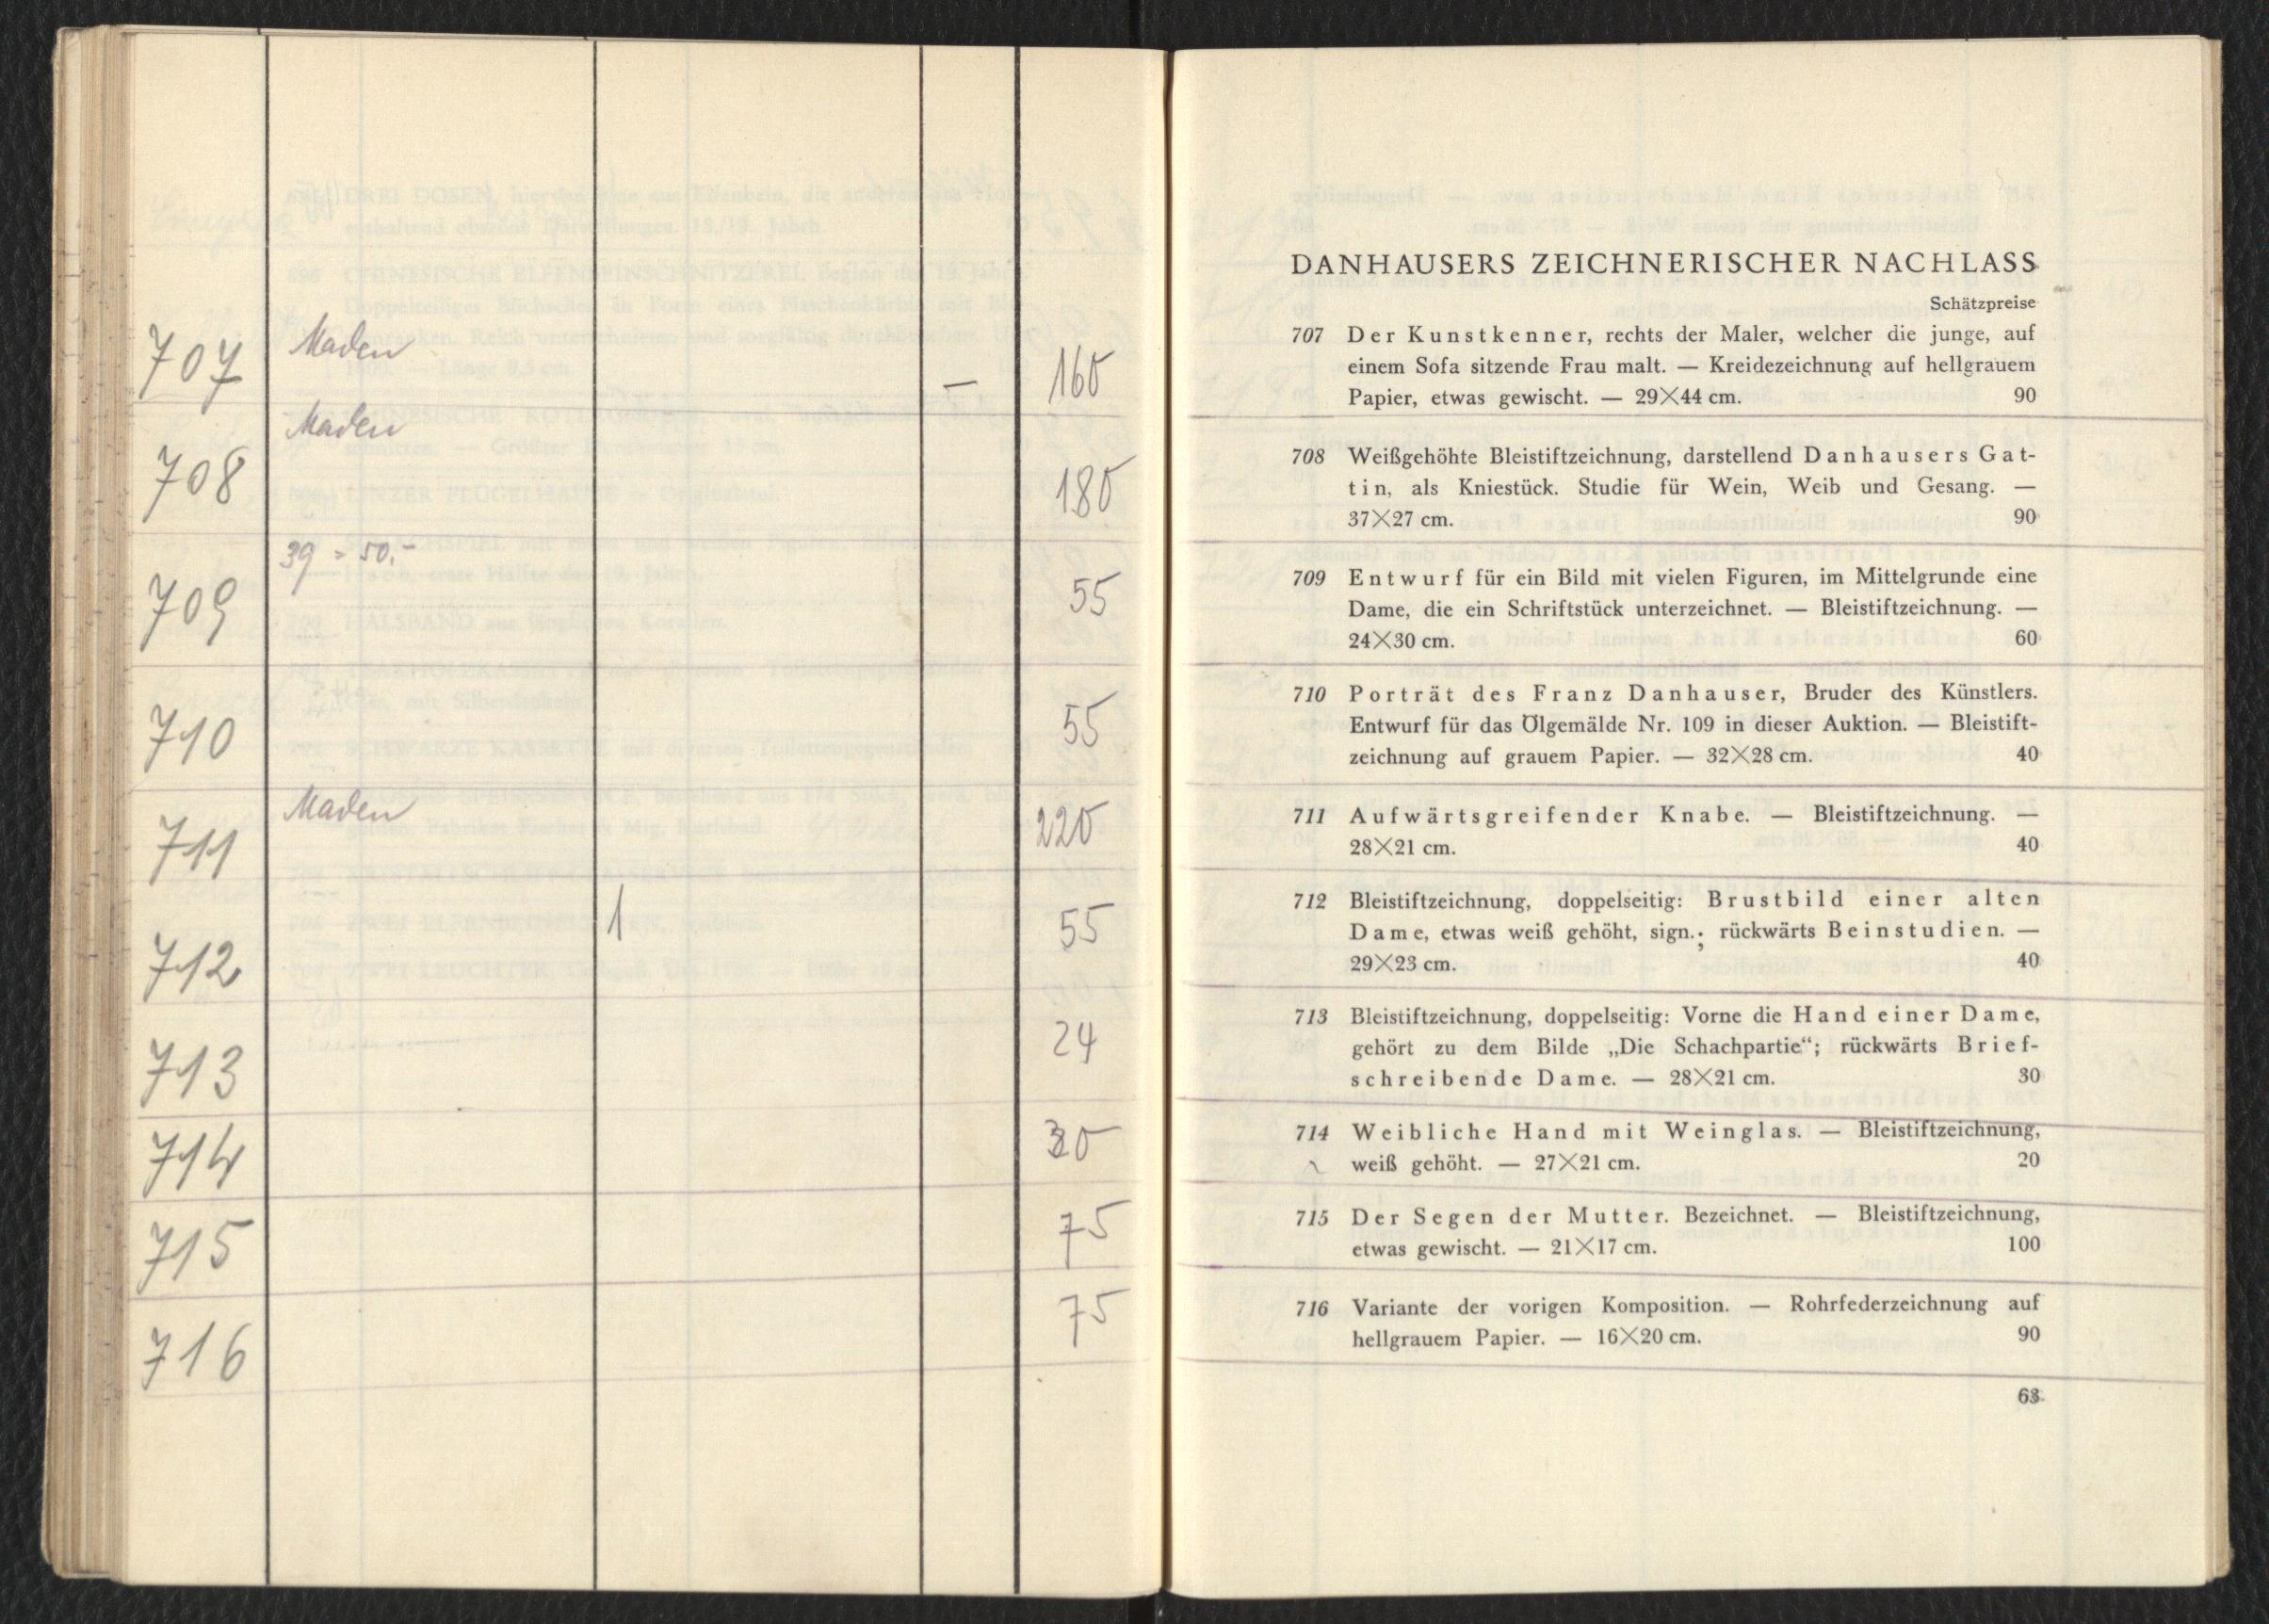 707 Maden — 160
708 Maden 180
709 39 = 50.- 55
710 55
711 Maden 220
712 1 55
713 24
714 30
715 75
716 75
DANHAUSERS ZEICHNERISCHER NACHLASS
Schätzpreise
707 Der Kunstkenner, rechts der Maler, welcher die junge, auf
einem Sofa sitzende Frau malt. — Kreidezeichnung auf hellgrauem
Papier, etwas gewischt. — 29×44 cm. 90
708 Weißgehöhte Bleistiftzeichnung, darstellend Danhausers Gat-
tin, als Kniestück. Studie für Wein, Weib und Gesang. —
37×27 cm. 90
709 Entwurf für ein Bild mit vielen Figuren, im Mittelgrunde eine
Dame, die ein Schriftstück unterzeichnet. — Bleistiftzeichnung. —
24×30 cm. 60
710 Porträt des Franz Danhauser, Bruder des Künstlers.
Entwurf für das Ölgemälde Nr. 109 in dieser Auktion. — Bleistift-
zeichnung auf grauem Papier. — 32×28 cm. 40
711 Aufwärtsgreifender Knabe. — Bleistiftzeichnung. —
28×21 cm. 40
712 Bleistiftzeichnung, doppelseitig: Brustbild einer alten
Dame, etwas weiß gehöht, sign.; rückwärts Beinstudien. —
29×23 cm. 40
713 Bleistiftzeichnung, doppelseitig: Vorne die Hand einer Dame,
gehört zu dem Bilde „Die Schachpartie“; rückwärts Brief-
schreibende Dame. — 28×21 cm. 30
714 Weibliche Hand mit Weinglas. — Bleistiftzeichnung,
weiß gehöht. — 27×21 cm. 20
715 Der Segen der Mutter. Bezeichnet. — Bleistiftzeichnung,
etwas gewischt. — 21×17 cm. 100
716 Variante der vorigen Komposition. — Rohrfederzeichnung auf
hellgrauem Papier. — 16×20 cm. 90
63